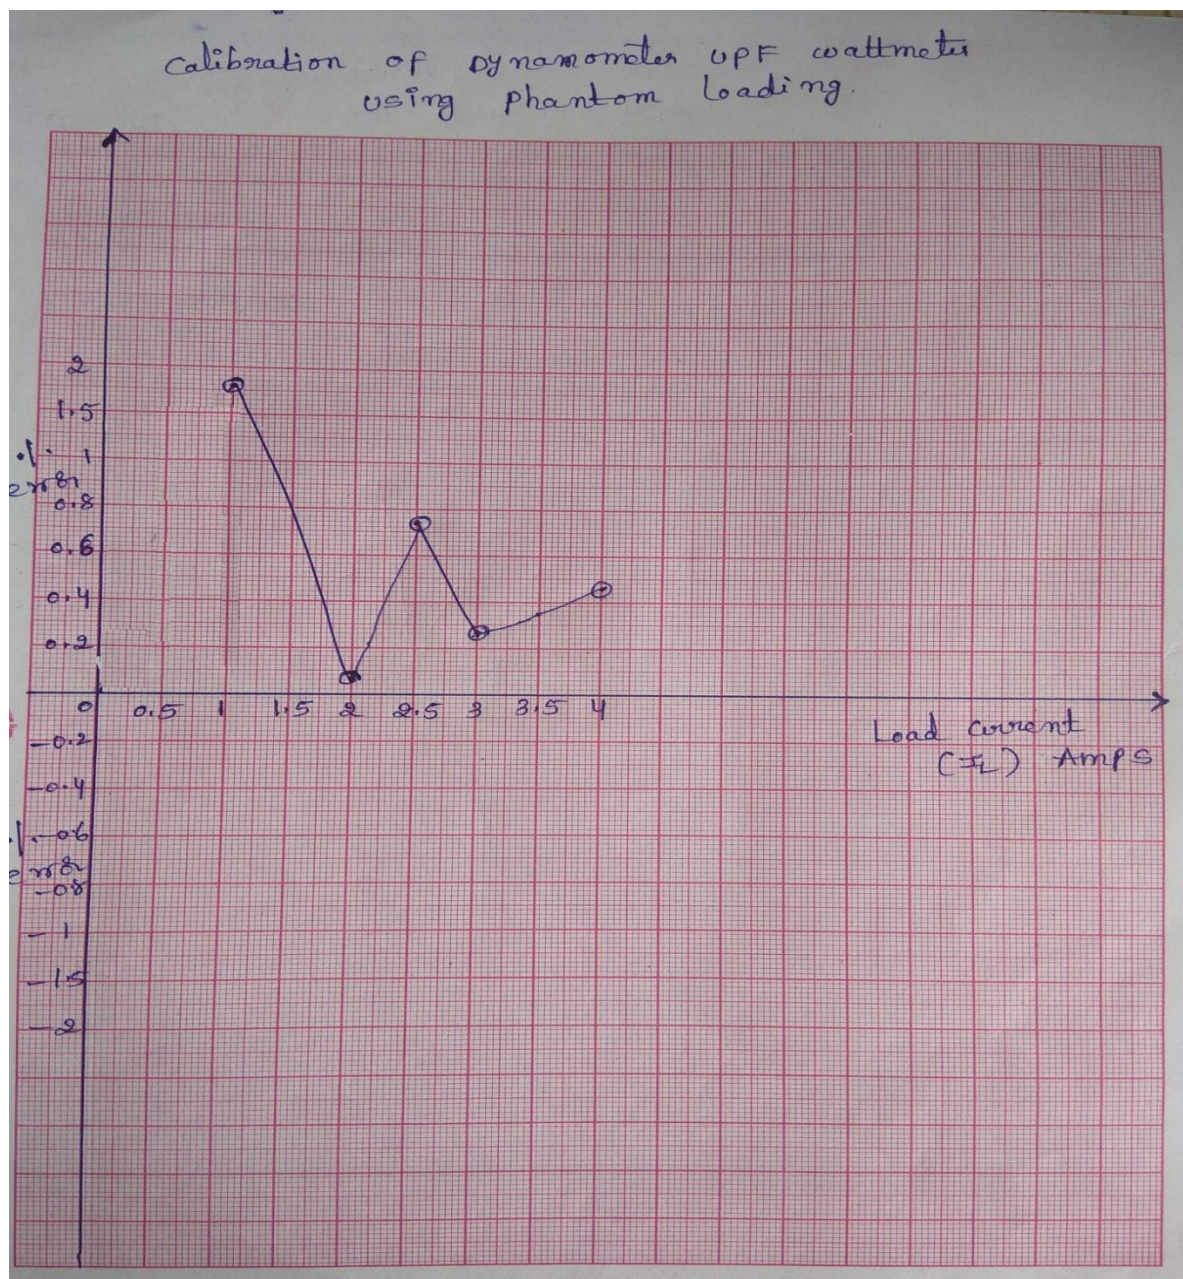 Calibration of Dynamometer UPF wattmeter
using Phantom Loading.
2
1.5
%
1
error
0.8
0.6
0.4
0.2
0 0.5 1 1.5 2 2.5 3 3.5 4
-0.2
Load current
(IL) Amps
-0.4
%
-06
error
-08
-1
-1.5
-2